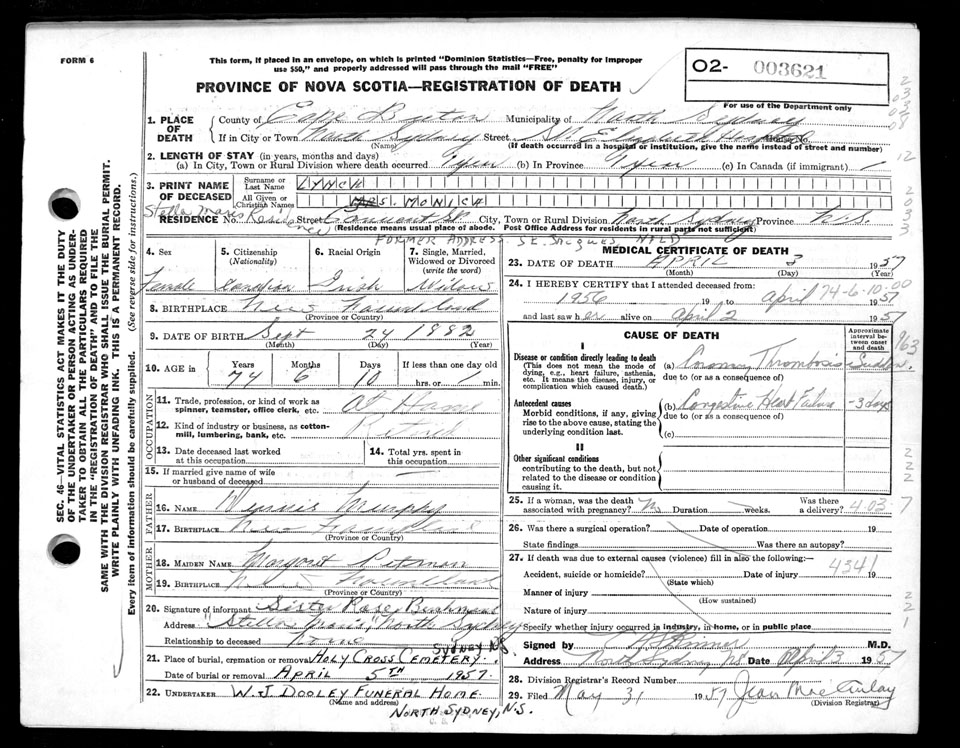 FORM 6
This form, if placed in an envelope, on which is printed "Dominion Statistics—Free, penalty for improper
use $50," and properly addressed will pass through the mail "FREE"
PROVINCE OF NOVA SCOTIA—REGISTRATION OF DEATH
O2- 003621
For use of the Department only
1. PLACE OF DEATH
County of Cape Breton Municipality of North Sydney
If in City or Town North Sydney Street St. Elizabeth Hospital House No.
(Name) (If death occurred in a hospital or institution, give the name instead of street and number)
2. LENGTH OF STAY (in years, months and days)
(a) In City, Town or Rural Division where death occurred 1 year (b) In Province 1 year (c) In Canada (if immigrant)
3. PRINT NAME OF DECEASED
Surname or Last Name LYNCH
All Given or Christian Names MRS. MONICA
Stella Maris Residence
RESIDENCE No. Street Convent St City, Town or Rural Division North Sydney Province N.S.
(Residence means usual place of abode. Post Office Address for residents in rural parts not sufficient)
FORMER ADDRESS ST. JACQUES NFLD
4. Sex
Female
5. Citizenship (Nationality)
Canadian
6. Racial Origin
Irish
7. Single, Married, Widowed or Divorced (write the word)
Widow
8. BIRTHPLACE New Foundland
(Province or Country)
9. DATE OF BIRTH Sept 24 1882
(Month) (Day) (Year)
10. AGE in
Years Months Days If less than one day old
74 6 10 hrs. or min.
OCCUPATION
11. Trade, profession, or kind of work as
spinner, teamster, office clerk, etc. At Home
12. Kind of industry or business, as cotton-
mill, lumbering, bank, etc. Retired
13. Date deceased last worked at this occupation
14. Total yrs. spent in this occupation
15. If married give name of wife
or husband of deceased
FATHER
16. NAME Dennis Murphy
17. BIRTHPLACE New Foundland
(Province or Country)
MOTHER
18. MAIDEN NAME Margaret
19. BIRTHPLACE New Foundland
(Province or Country)
20. Signature of informant Sister Rose
Address "Stella Maris" North Sydney
Relationship to deceased None
21. Place of burial, cremation or removal HOLY CROSS CEMETERY. SYDNEY N.S.
Date of burial or removal APRIL 5TH 1957.
22. UNDERTAKER W. J. DOOLEY FUNERAL HOME.
(Name and address)
NORTH SYDNEY, N.S.
MEDICAL CERTIFICATE OF DEATH
23. DATE OF DEATH APRIL 3 1957
(Month) (Day) (Year)
24. I HEREBY CERTIFY that I attended deceased from:
1956 19 to April 1957
74-6-10.00
and last saw her alive on April 2 1957
CAUSE OF DEATH
Approximate interval between onset and death
I
Disease or condition directly leading to death
(This does not mean the mode of
dying, e.g., heart failure, asthenia,
etc. It means the disease, injury, or
complication which caused death.)
(a) Coronary Thrombosis Sudden.
due to (or as a consequence of)
Antecedent causes
Morbid conditions, if any, giving
rise to the above cause, stating the
underlying condition last.
(b) Congestive Heart Failure - 3 days
due to (or as a consequence of)
(c)
II
Other significant conditions
contributing to the death, but not
related to the disease or condition
causing it.
25. If a woman, was the death
associated with pregnancy? No Duration weeks. Was there a delivery?
26. Was there a surgical operation? Date of operation 19
State findings Was there an autopsy?
27. If death was due to external causes (violence) fill in also the following:—
4341
Accident, suicide or homicide? Date of injury 19
(State which)
Manner of injury
(How sustained)
Nature of injury
Specify whether injury occurred in industry, in home, or in public place
Signed by M.D.
Address North Sydney NS Date April 3 1957
28. Division Registrar's Record Number
29. Filed May 31 1957
(Division Registrar)
SEC. 46—VITAL STATISTICS ACT MAKES IT THE DUTY
OF THE UNDERTAKER OR PERSON ACTING AS UNDER-
TAKER TO OBTAIN ALL THE PARTICULARS REQUIRED
IN THE "REGISTRATION OF DEATH" AND TO FILE THE
SAME WITH THE DIVISION REGISTRAR WHO SHALL ISSUE THE BURIAL PERMIT.
WRITE PLAINLY WITH UNFADING INK. THIS IS A PERMANENT RECORD.
Every item of information should be carefully supplied. (See reverse side for instructions.)